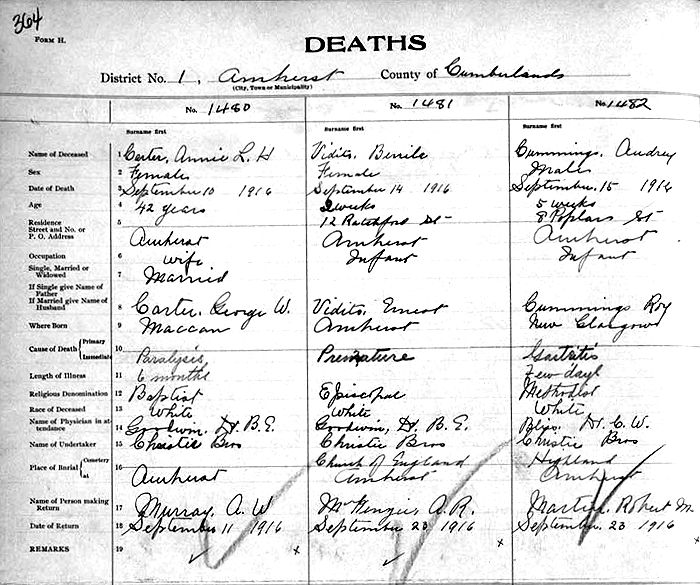 364
FORM H.
DEATHS
District No. 1, Amherst County of Cumberland
(City, Town or Municipality)
No. 1480 No. 1481 No. 1482
Surname first Surname first Surname first
Name of Deceased 1 Carter, Annie L. H Vidito, Cummings, Audrey
Sex 2 Female Female Male
Date of Death 3 September 10 1916 September 14 1916 September 15 1916
Age 4 42 years 2 weeks 5 weeks
Residence Street and No. or P. O. Address 5 Amherst 12 Ratchford St Amherst 8 Poplar St Amherst
Occupation 6 wife Infant Infant
Single, Married or Widowed 7 Married
If Single give Name of Father
If Married give Name of Husband 8 Carter, George W. Vidito, Ernest Cummings Roy
Where Born 9 Maccan Amherst New Glasgow
Cause of Death Primary Immediate 10 Paralysis Premature Gastritis
Length of Illness 11 6 months Few days
Religious Denomination 12 Baptist Episcopal Methodist
Race of Deceased 13 White White White
Name of Physician in attendance 14 Goodwin, Dr. B. E. Goodwin, Dr. B. E. Bliss, Dr. C. W.
Name of Undertaker 15 Christie Bros Christie Bros Christie Bros
Place of Burial Cemetery at 16 Amherst Church of England Amherst Highland Amherst
Name of Person making Return 17 Murray, A. W McKenzie, A. R. Martin, Robert M.
Date of Return 18 September 11 1916 September 23 1916 September 23 1916
REMARKS 19 x x x